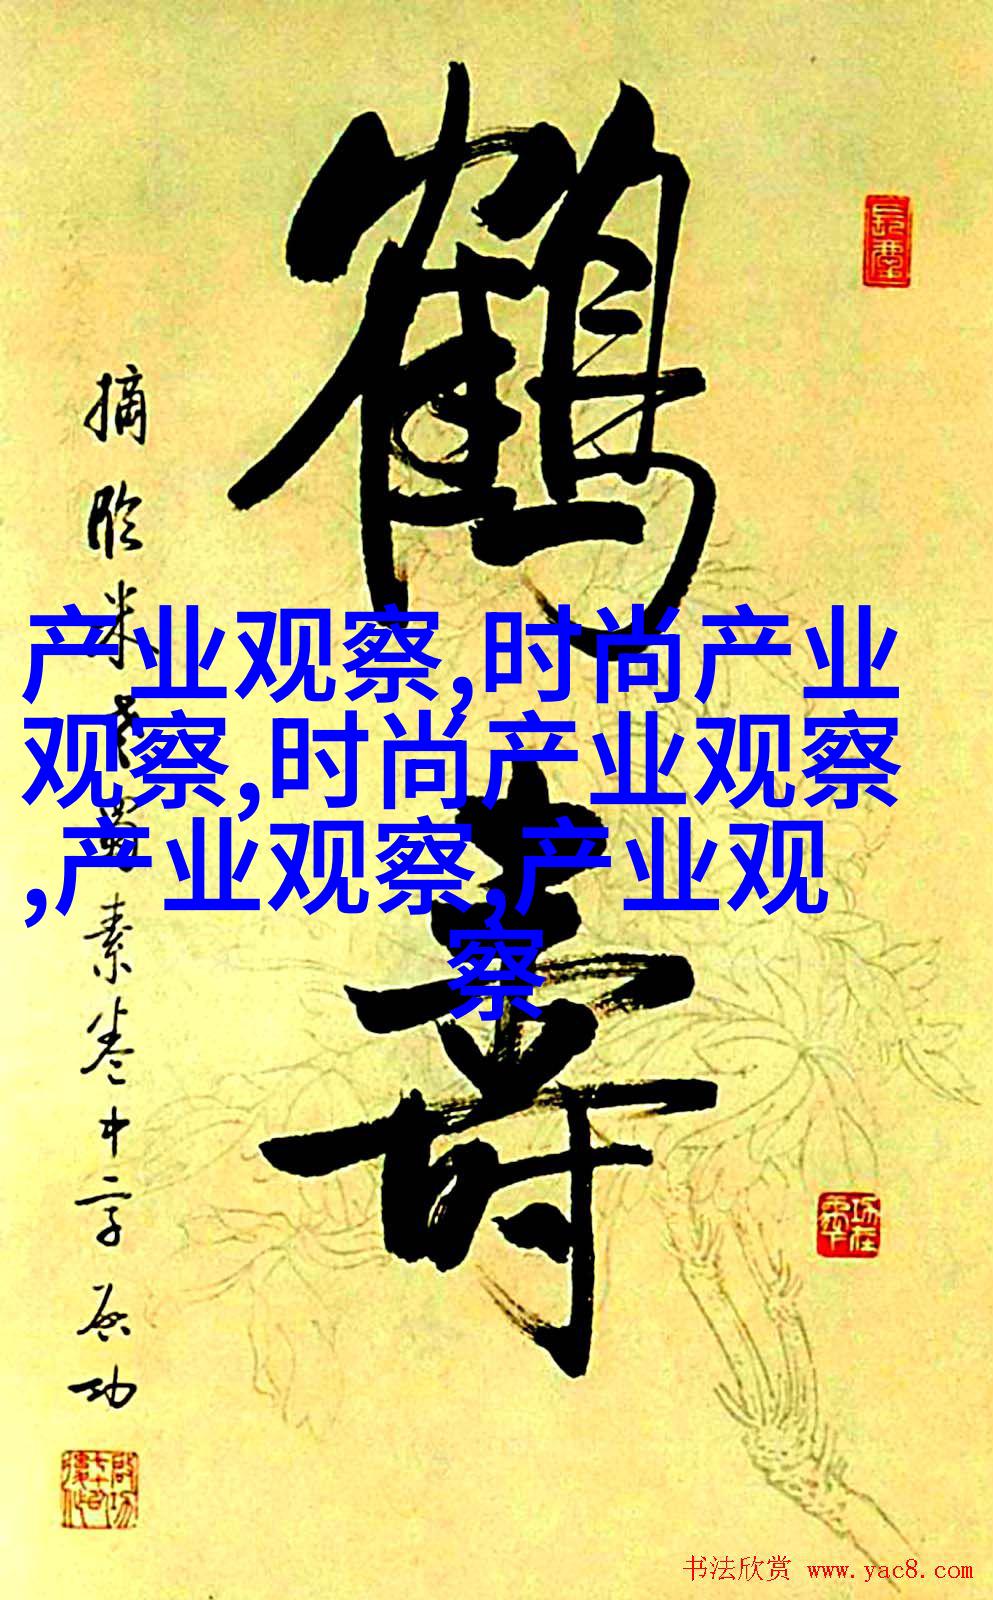 鹤
寿
摘临米老蜀素卷中字 启功
产业观察,时尚产业
观察,时尚产业观察
,产业观察,产业观
察
书法欣赏 www.yac8.com